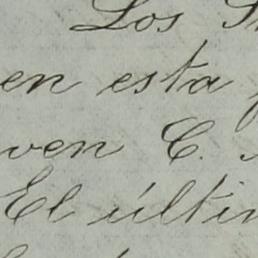 Los
en esta
ven C.
El últi